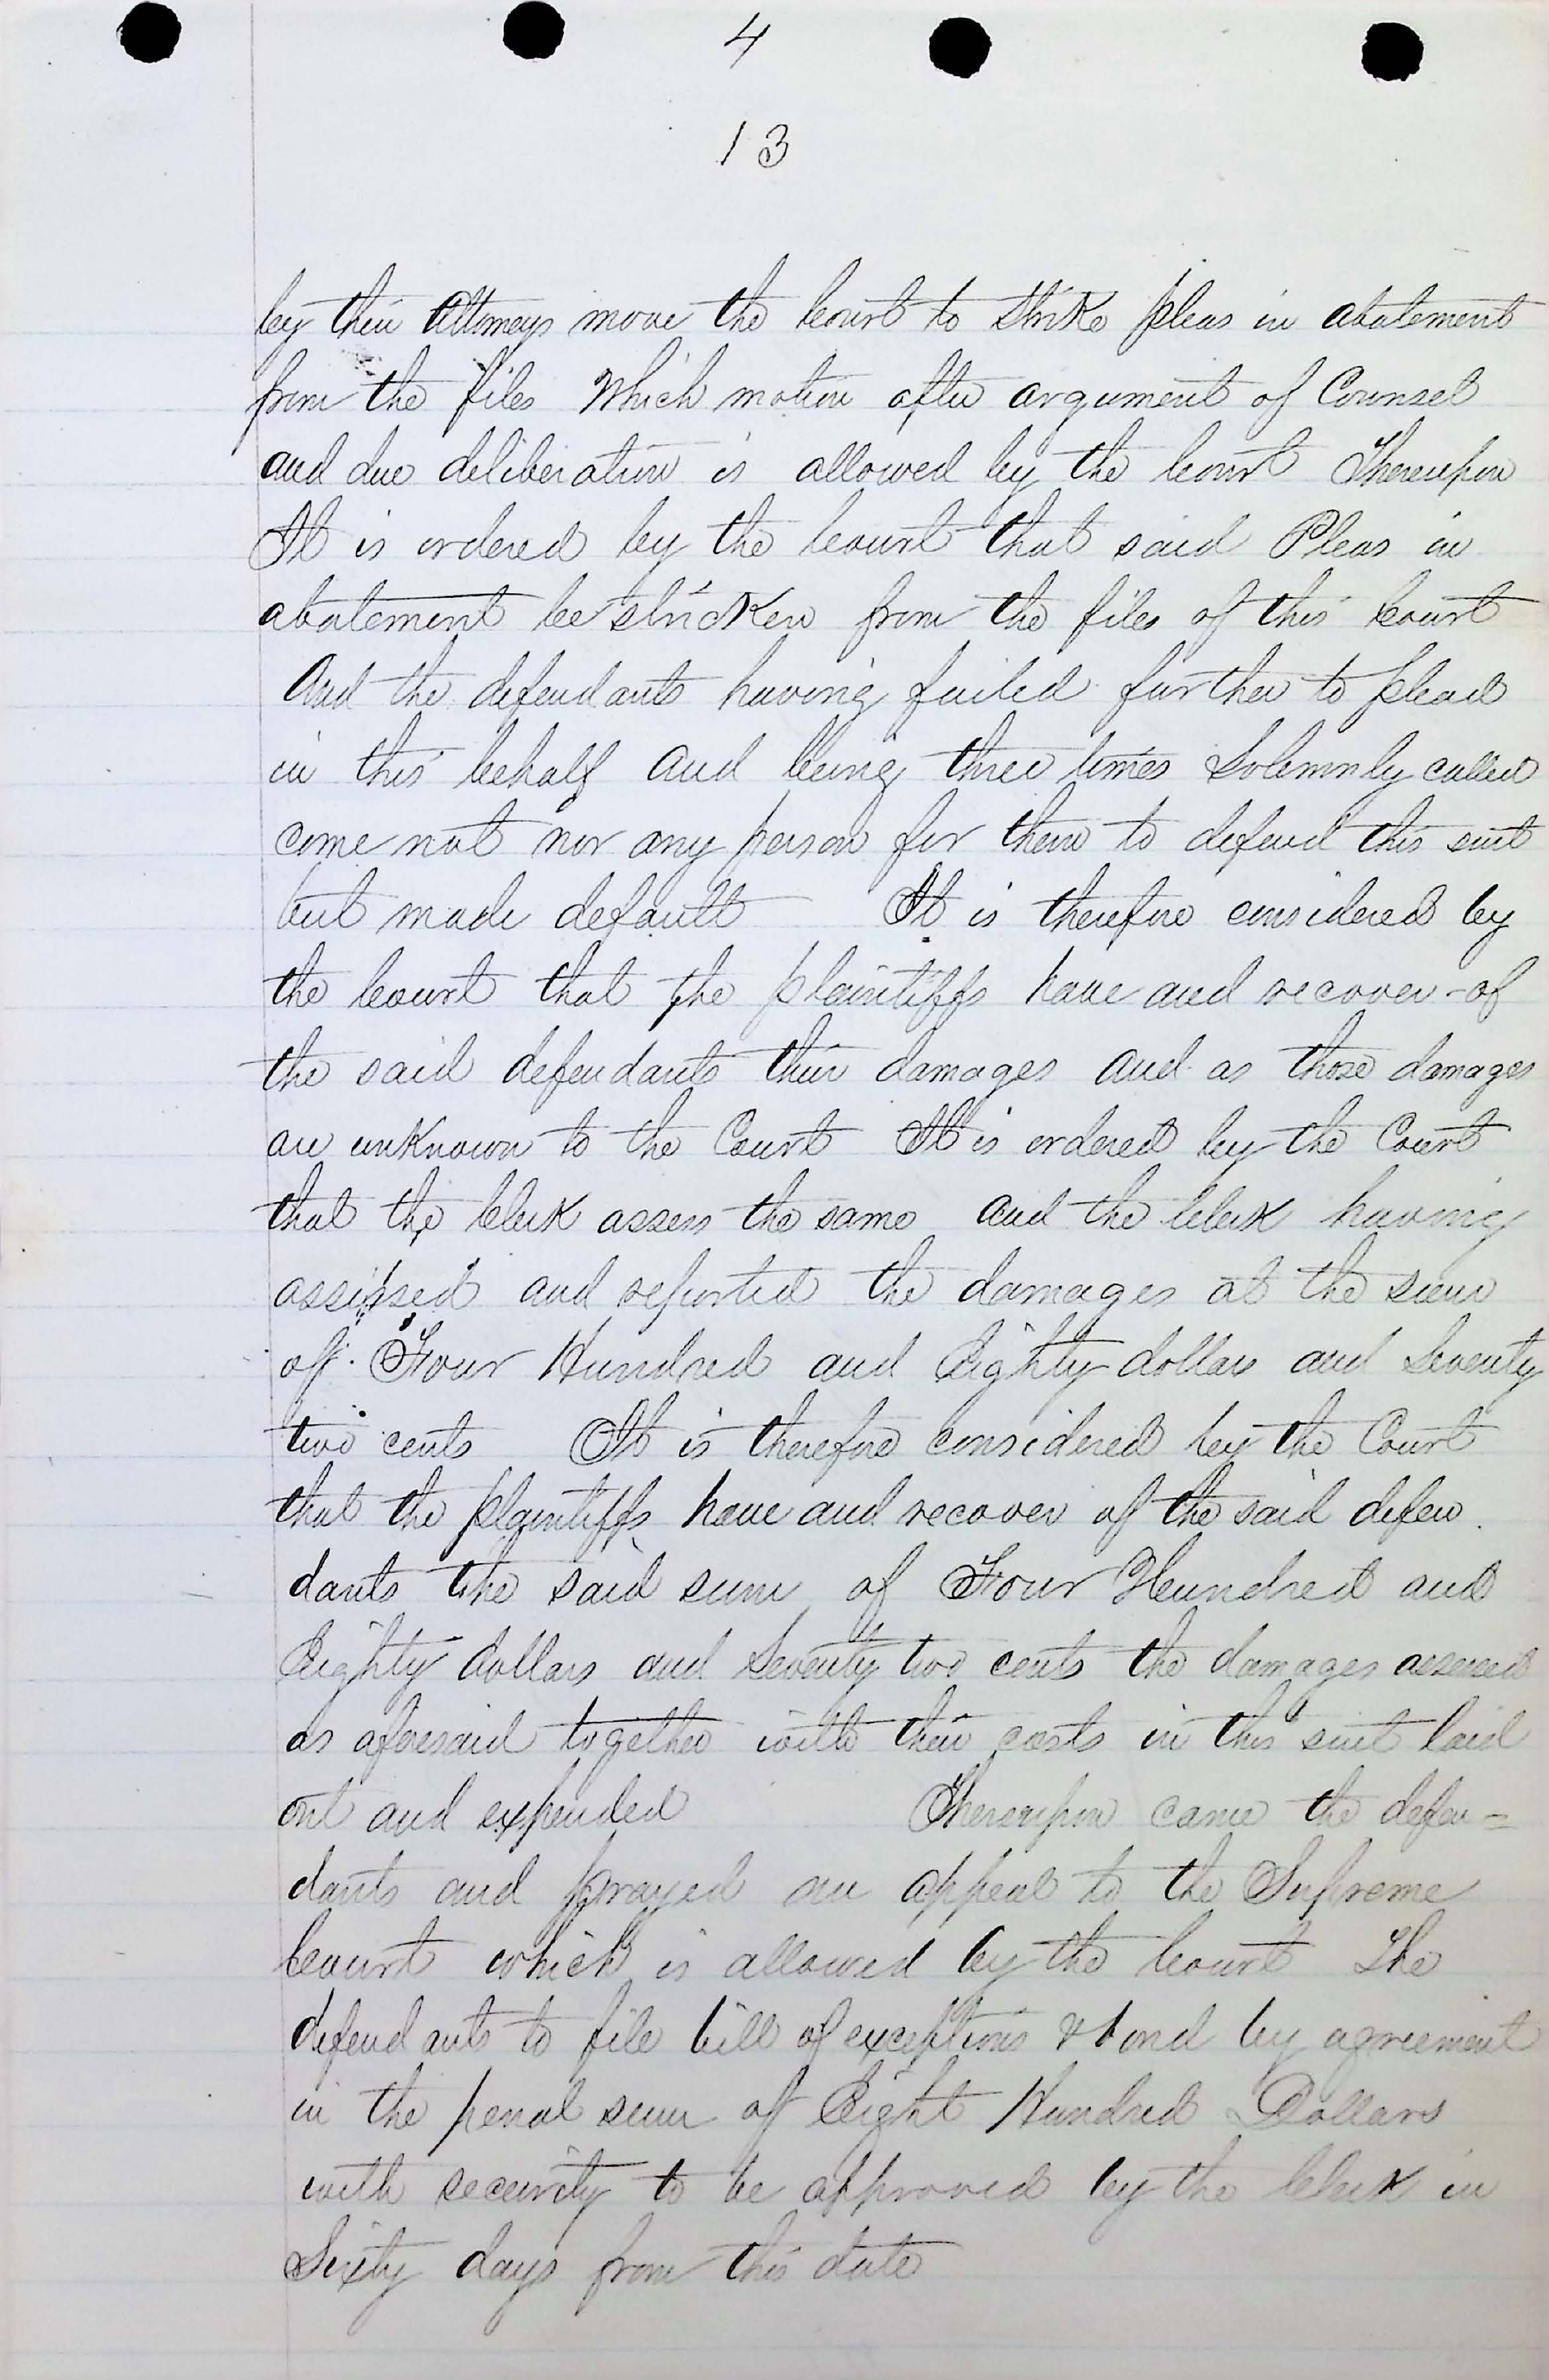 4
13
by their Attorneys move the Court to Strike pleas in abatement
from the files Which motion after argument of Counsel
and due deliberation is allowed by the Court Thereupon
It is ordered by the Court that said Pleas in
abatement be stricken from the files of this Court
And the defendants having failed further to plead
in this behalf and being three times Solemnly called
come not nor any person for them to defend this suit
but made default It is therefore considered by
the Court that the plaintiffs have and recover of
the said defendants their damages and as those damages
are unknown to the Court It is ordered by the Court
that the Clerk assess the same and the Clerk having
assessed and reported the damages at the sum
of Four Hundred and Eighty dollars and Seventy
two cents It is therefore Considered by the Court
that the plaintiffs have and recover of the said defen
dants the said sum of Four Hundred and
Eighty dollars and Seventy two cents the damages assessed
as aforesaid together with their costs in this suit laid
out and expended Thereupon came the defen=
dants and prayed an appeal to the Supreme
Court which is allowed by the Court The
defendants to file bill of exceptions & bond by agreement
in the penal sum of Eight Hundred Dollars
with security to be approved by the Clerk in
Sixty days from this date